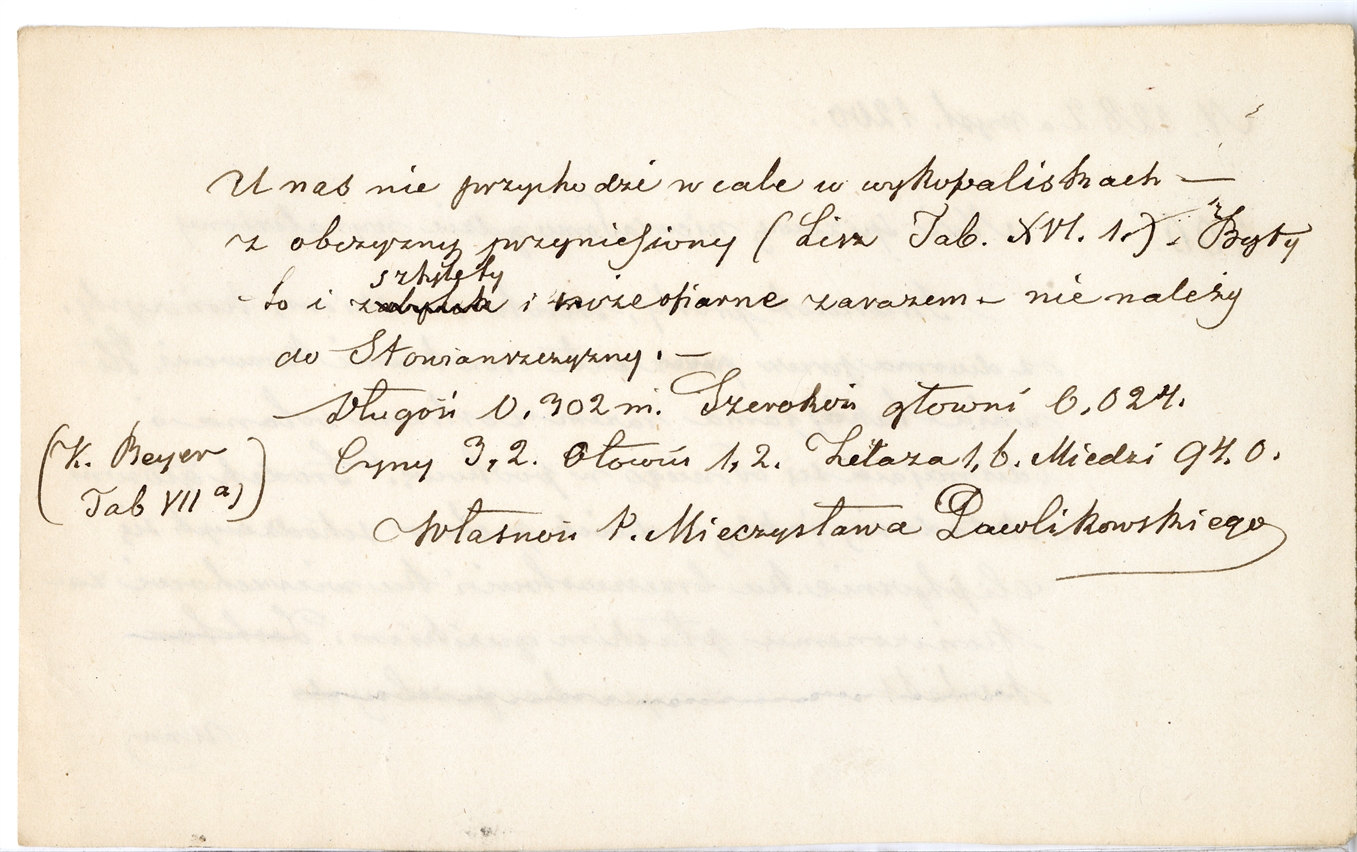 U nas nie przychodzi wcale w wykopaliskach —
z obczyzny przyniesiony (Lisz Tab. XVI. 1.). Były
sztylety
to i i noże ofiarne zarazem — nie należy
do Słowiańszczyzny. —
Długość 0,302 m. Szerokość głowni 0,024.
(K. Beyer
Tab VII a))
Cyny 3,2. Ołowiu 1,2. Żelaza 1,6. Miedzi 94.0.
Własność P. Mieczysława Pawlikowskiego